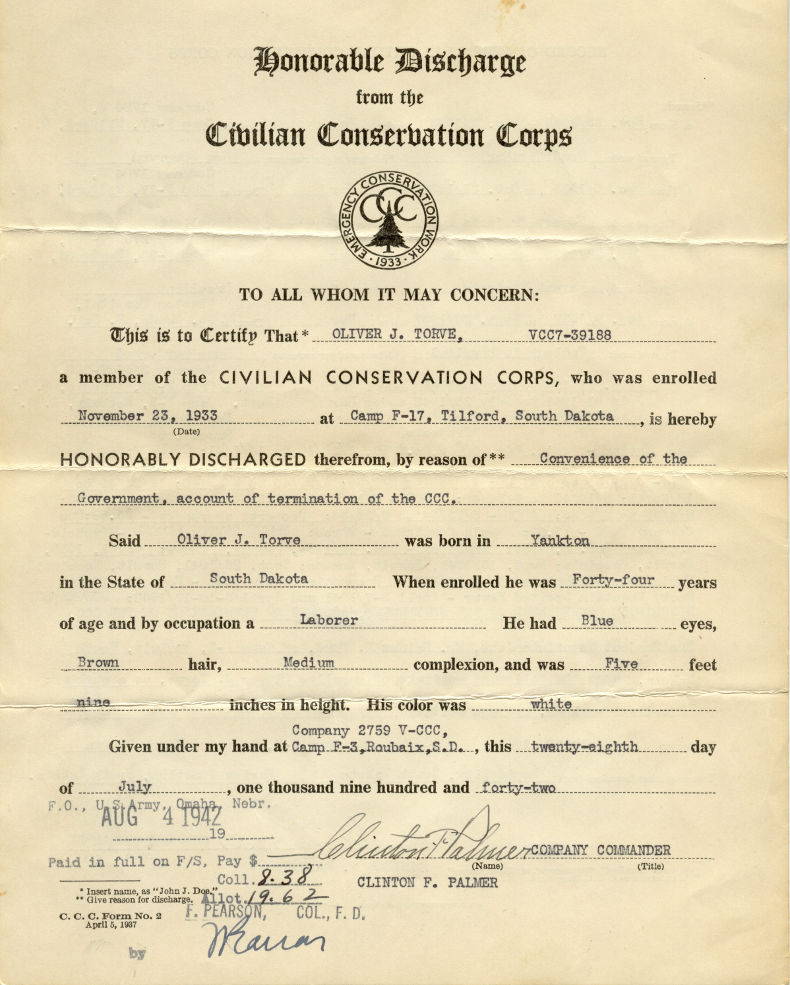 Honorable Discharge
from the
Civilian Conservation Corps
EMERGENCY CONSERVATION WORK
CCC
· 1933 ·
TO ALL WHOM IT MAY CONCERN:
This is to Certify That* OLIVER J. TORVE, VCC7-39188
a member of the CIVILIAN CONSERVATION CORPS, who was enrolled
November 23, 1933 at Camp F-17, Tilford, South Dakota, is hereby
(Date)
HONORABLY DISCHARGED therefrom, by reason of** Convenience of the
Government, account of termination of the CCC.
Said Oliver J. Torve was born in Yankton
in the State of South Dakota When enrolled he was Forty-four years
of age and by occupation a Laborer He had Blue eyes,
Brown hair, Medium complexion, and was Five feet
nine inches in height. His color was white
Company 2759 V-CCC,
Given under my hand at Camp F-3, Roubaix, S.D., this twenty-eighth day
of July, one thousand nine hundred and forty-two
F.O., U.S. Army, Omaha, Nebr.
AUG 4 1942
19
Clinton F Palmer COMPANY COMMANDER
Paid in full on F/S, Pay $ (Name) (Title)
Coll. 8.38 CLINTON F. PALMER
* Insert name, as "John J. Doe."
** Give reason for discharge. Allot. 19.62
C. C. C. Form No. 2 F. PEARSON, COL., F. D.
April 5, 1937
by